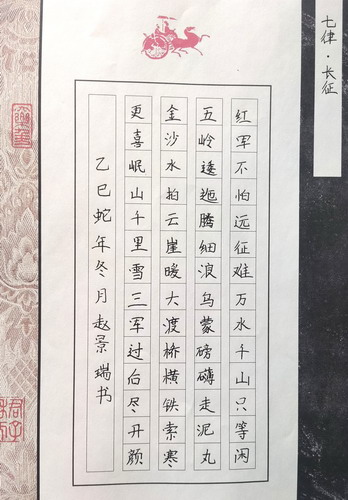 七律·长征
红军不怕远征难万水千山只等闲
五岭逶迤腾细浪乌蒙磅礴走泥丸
金沙水拍云崖暖大渡桥横铁索寒
更喜岷山千里雪三军过后尽开颜
乙巳蛇年冬月赵景瑞书